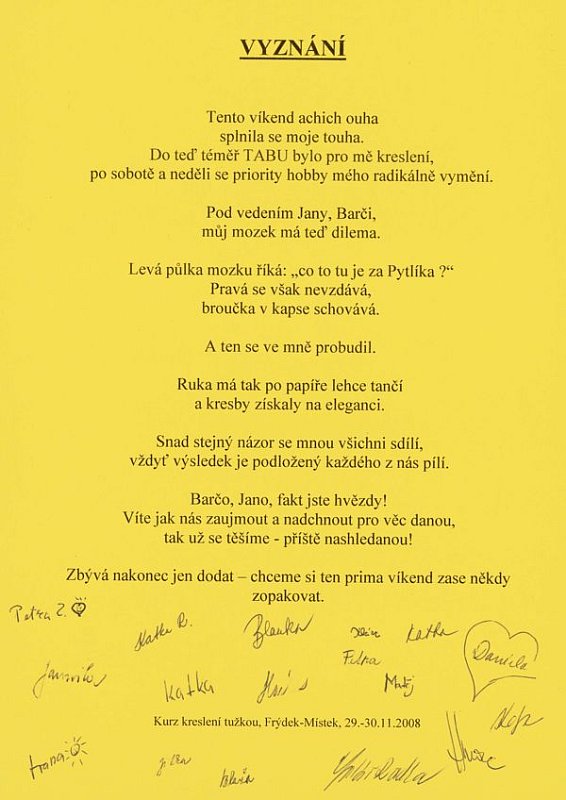 VYZNÁNÍ
Tento víkend achich ouha
splnila se moje touha.
Do teď téměř TABU bylo pro mě kreslení,
po sobotě a neděli se priority hobby mého radikálně vymění.
Pod vedením Jany, Barči,
můj mozek má teď dilema.
Levá půlka mozku říká: „co to tu je za Pytlíka ?“
Pravá se však nevzdává,
broučka v kapse schovává.
A ten se ve mně probudil.
Ruka má tak po papíře lehce tančí
a kresby získaly na eleganci.
Snad stejný názor se mnou všichni sdílí,
vždyť výsledek je podložený každého z nás pílí.
Barčo, Jano, fakt jste hvězdy!
Víte jak nás zaujmout a nadchnout pro věc danou,
tak už se těšíme - příště nashledanou!
Zbývá nakonec jen dodat – chceme si ten prima víkend zase někdy
zopakovat.
Petra Z.
Katka R.
Blanka
Katka
Daniela
Jarmila
Katka
Petra
Matěj
Kurz kreslení tužkou, Frýdek-Místek, 29.-30.11.2008